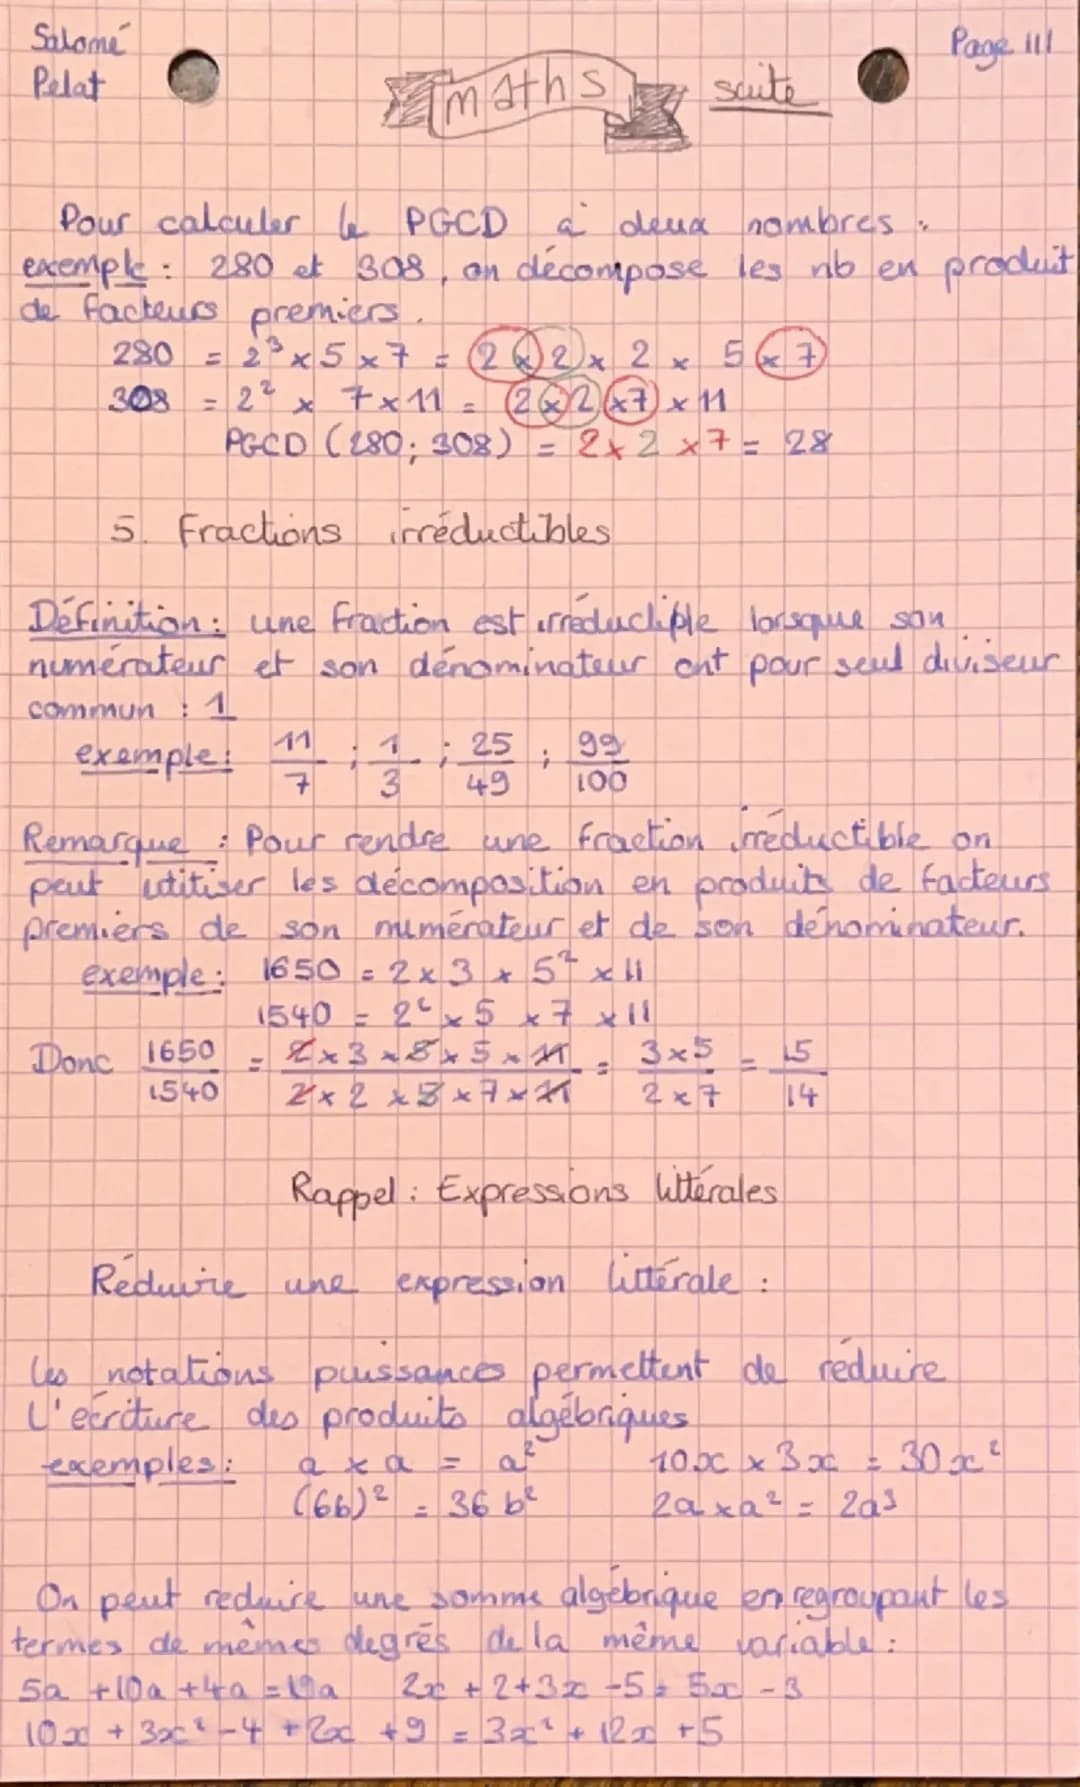 Salomé
Pelat
maths suite
Page III
Pour calculer le PGCD à deux nombres :
exemple : 280 et 308, on décompose les nb en produit
de facteurs premiers.
280 = 2³ x 5 x 7 = 2 x 2 x 2 x 5 x 7
308 = 2² x 7 x 11 = 2 x 2 x 7 x 11
PGCD (280; 308) = 2 x 2 x 7 = 28
5. Fractions irréductibles
Définition : une fraction est irréductiple lorsque son
numérateur et son dénominateur ont pour seul diviseur
commun : 1
exemple : 11/7 ; 1/3 ; 25/49 ; 99/100
Remarque : Pour rendre une fraction irréductible on
peut utitiser les décomposition en produits de facteurs
premiers de son numérateur et de son dénominateur.
exemple : 1650 = 2 x 3 x 5² x 11
1540 = 2² x 5 x 7 x 11
Donc 1650/1540 = 2 x 3 x 5 x 5 x 11 / 2 x 2 x 5 x 7 x 11 = 3 x 5 / 2 x 7 = 15/14
Rappel : Expressions littérales
Réduire une expression littérale :
Les notations puissances permettent de réduire
L'écriture des produits algébriques
exemples : a x a = a² 10x x 3x = 30x²
(6b)² = 36 b² 2a x a² = 2a³
On peut réduire une somme algébrique en regroupant les
termes de mêmes degrés de la même variable :
5a + 10a + 4a = 19a 2x + 2 + 3x - 5 = 5x - 3
10x + 3x² - 4 + 2x + 9 = 3x² + 12x + 5